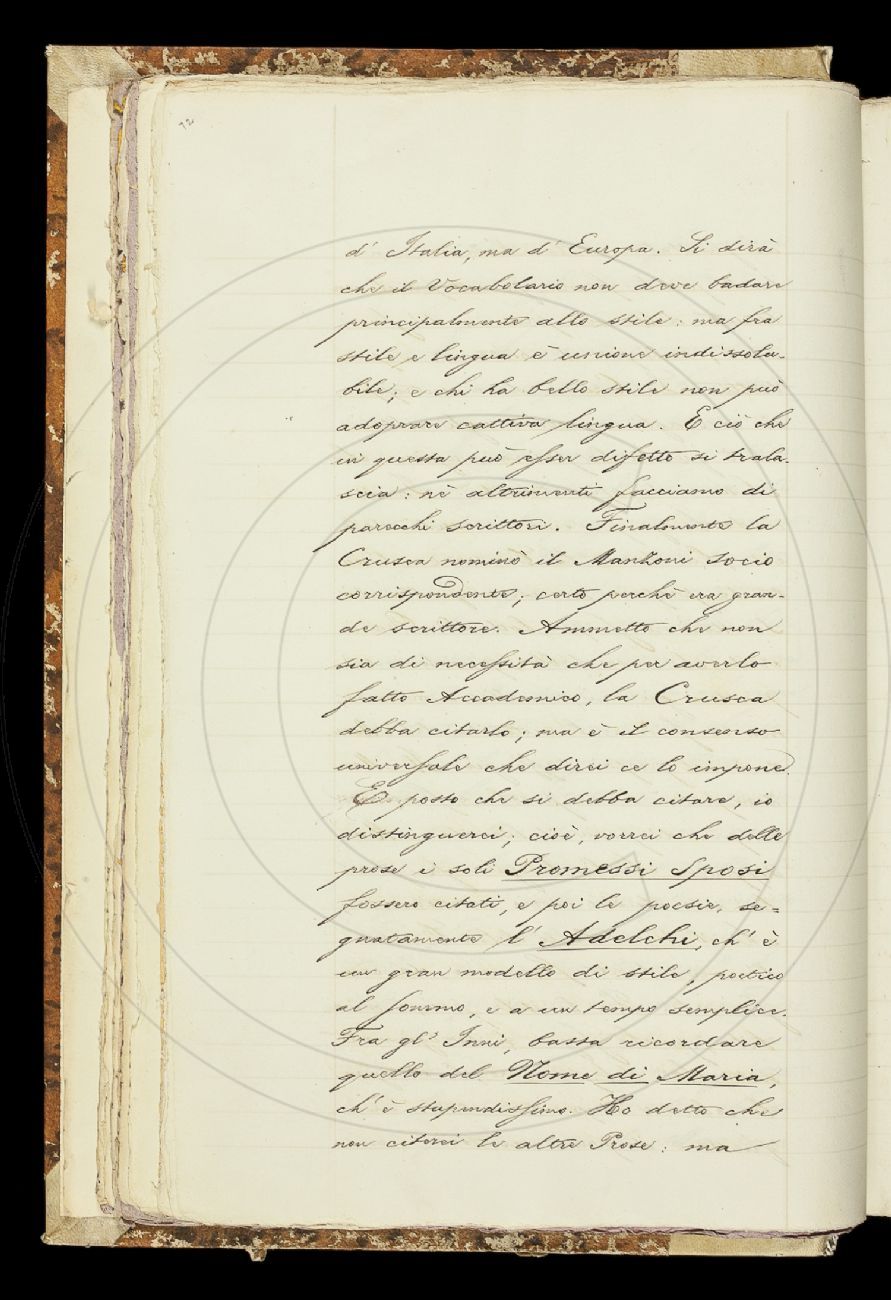 72
d' Italia, ma d' Europa. Si dirà
che il Vocabolario non deve badare
principalmente allo stile: ma fra
stile e lingua è unione indissolu-
bile; e chi ha bello stile non può
adoprare cattiva lingua. E ciò che
in questa può esser difetto si trala-
scia: nè altrimenti facciamo di
parecchi scrittori. Finalmente la
Crusca nominò il Manzoni socio
corrispondente; certo perchè era gran-
de scrittore. Ammetto che non
sia di necessità che per averlo
fatto Accademico, la Crusca
debba citarlo; ma è il consenso
universale che direi ce lo impone.
E posto che si debba citare, io
distinguerei; cioè, vorrei che delle
prose i soli Promessi Sposi
fossero citati, e poi le poesie, se=
gnatamente l' Adelchi, ch' è
un gran modello di stile, poetico
al sommo, e a un tempo semplice.
Fra gl' Inni, bassa ricordare
quello del Nome di Maria,
ch' è stupendissimo. Ho detto che
non citerei le altre Prose: ma